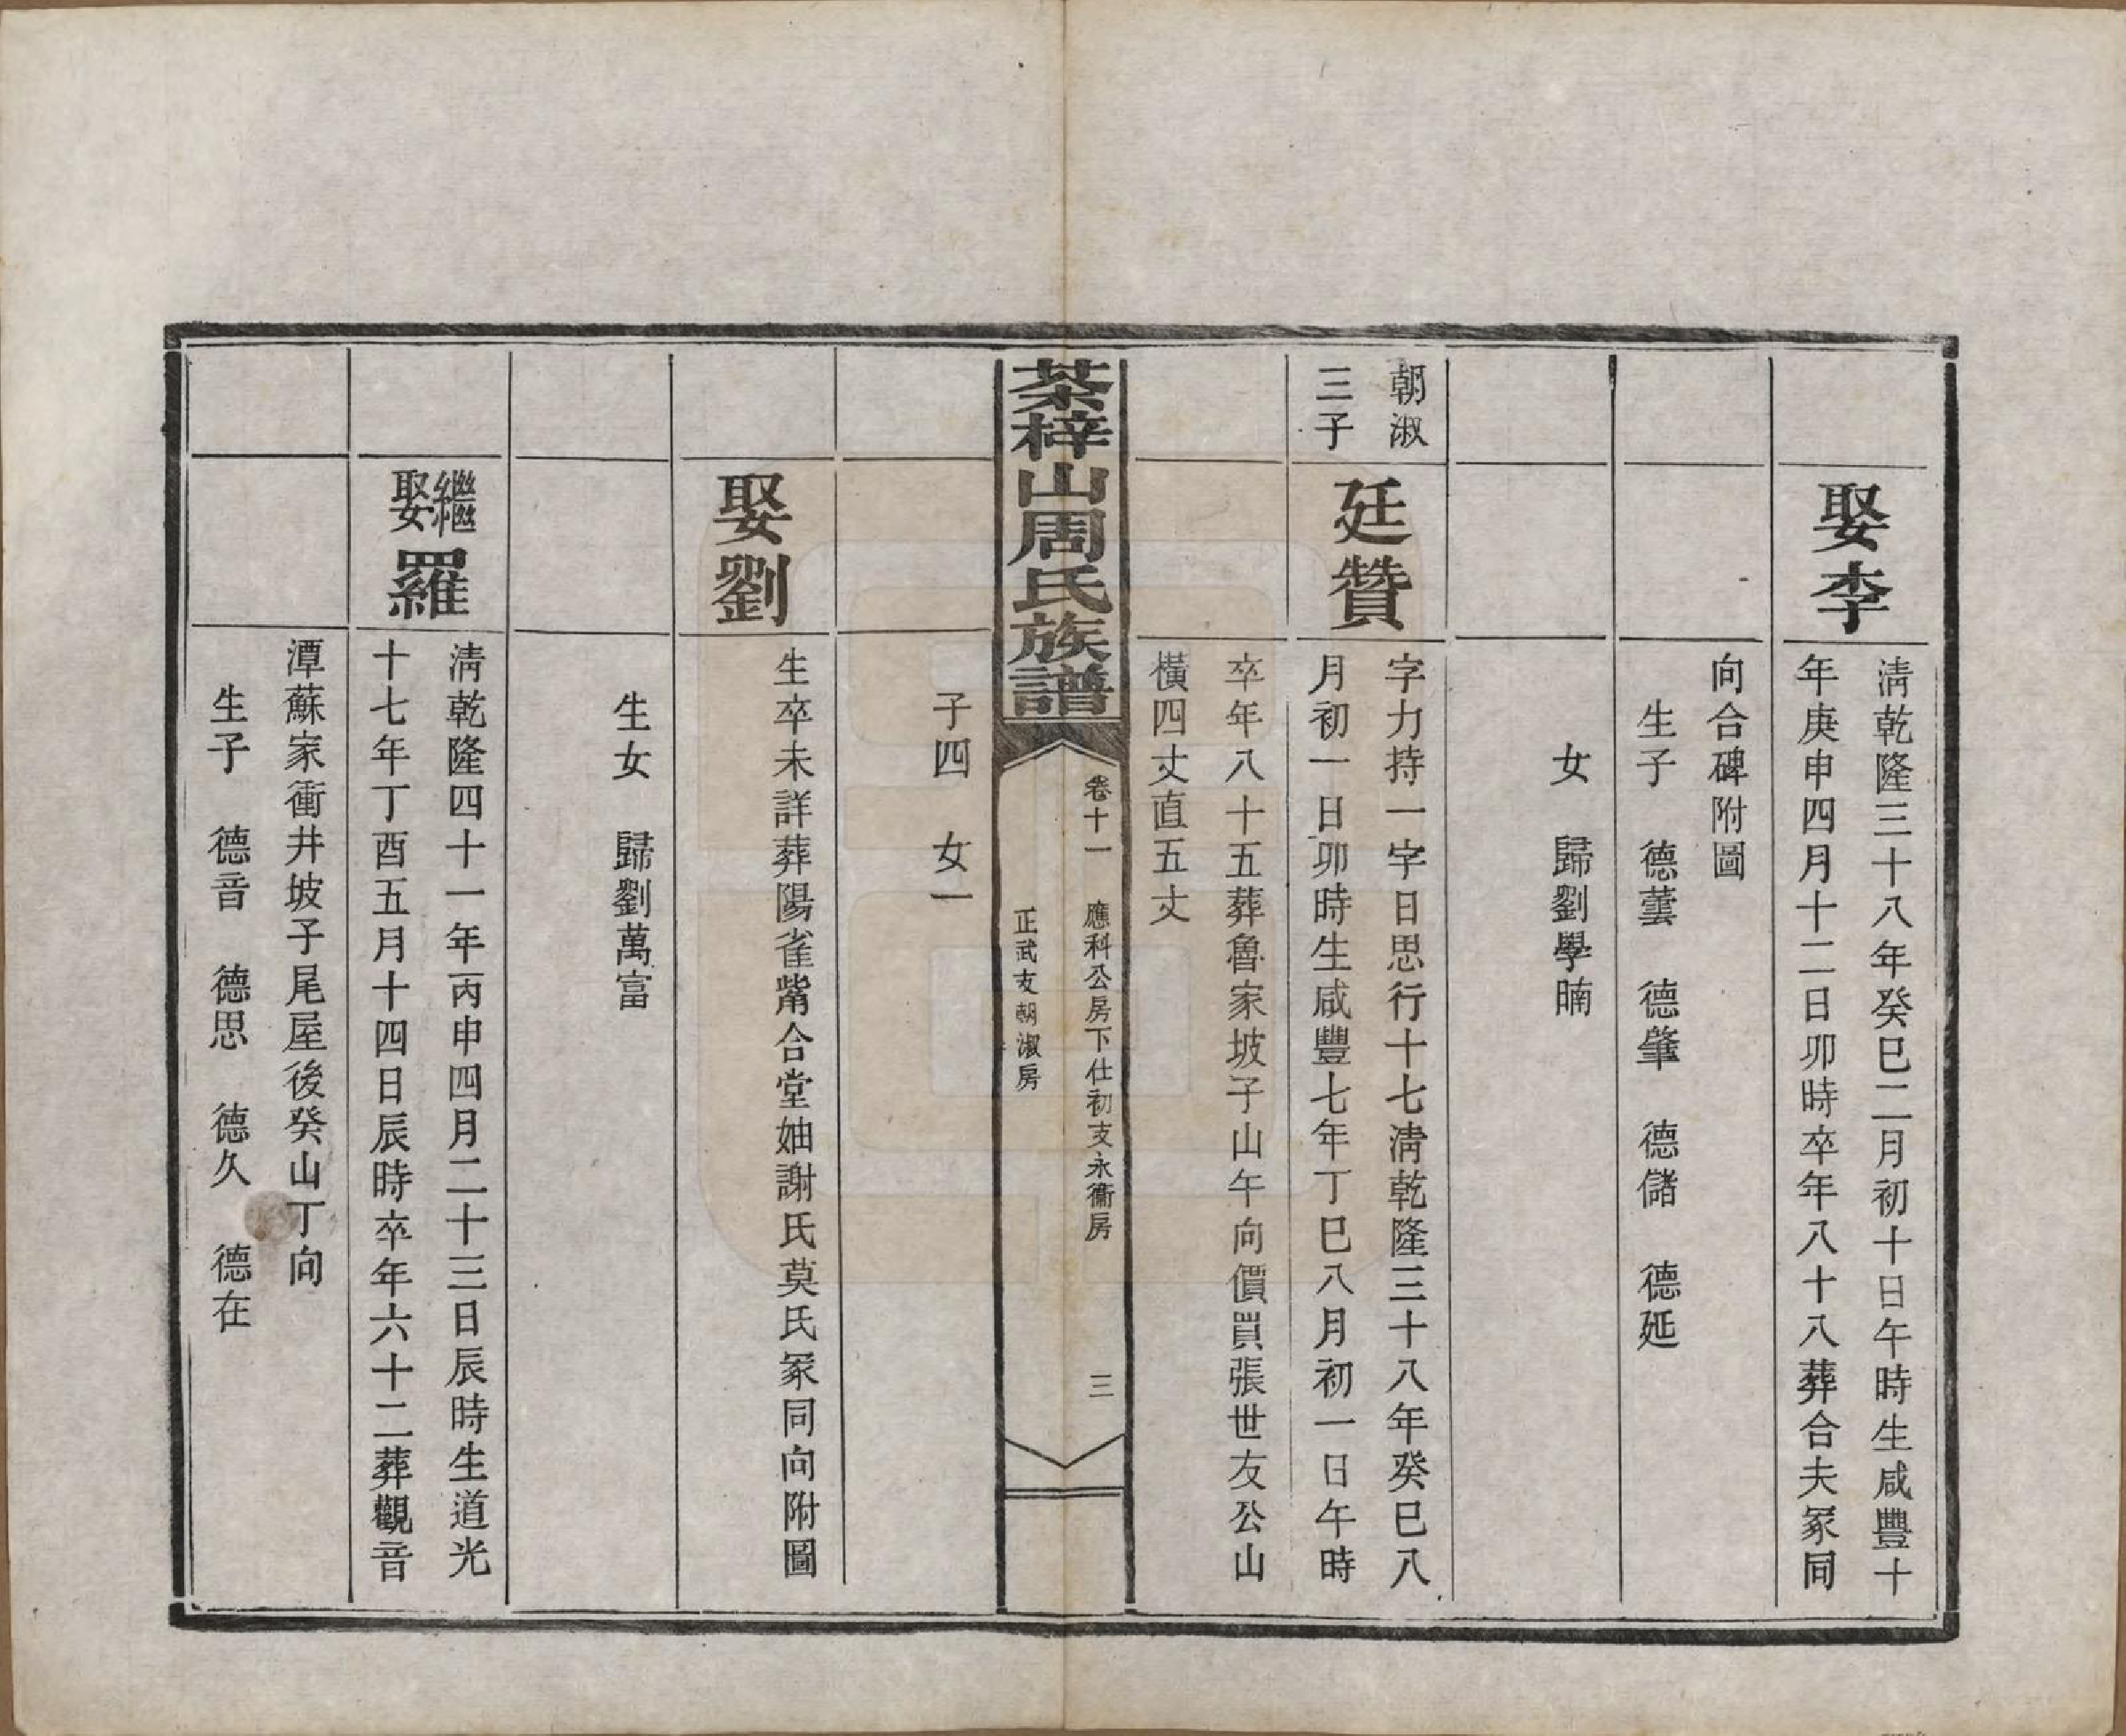 娶李
清乾隆三十八年癸巳二月初十日午時生咸豐十
年庚申四月十二日卯時卒年八十八葬合夫冢同
向合碑附圖
生子 德蕓 德肇 德儲 德延
女 歸劉學暔
朝淑
三子
廷贊
字力持一字日思行十七清乾隆三十八年癸巳八
月初一日卯時生咸豐七年丁巳八月初一日午時
卒年八十五葬魯家坡子山午向價買張世友公山
橫四丈直五丈
茶梓山周氏族譜
卷十一 應科公房下仕初支永衞房
正武支朝淑房
三
子四 女一
娶劉
生卒未詳葬陽雀觜合堂妯謝氏莫氏冢同向附圖
生女 歸劉萬富
繼娶羅
清乾隆四十一年丙申四月二十三日辰時生道光
十七年丁酉五月十四日辰時卒年六十二葬觀音
潭蘇家衝井坡子尾屋後癸山丁向
生子 德音 德思 德久 德在